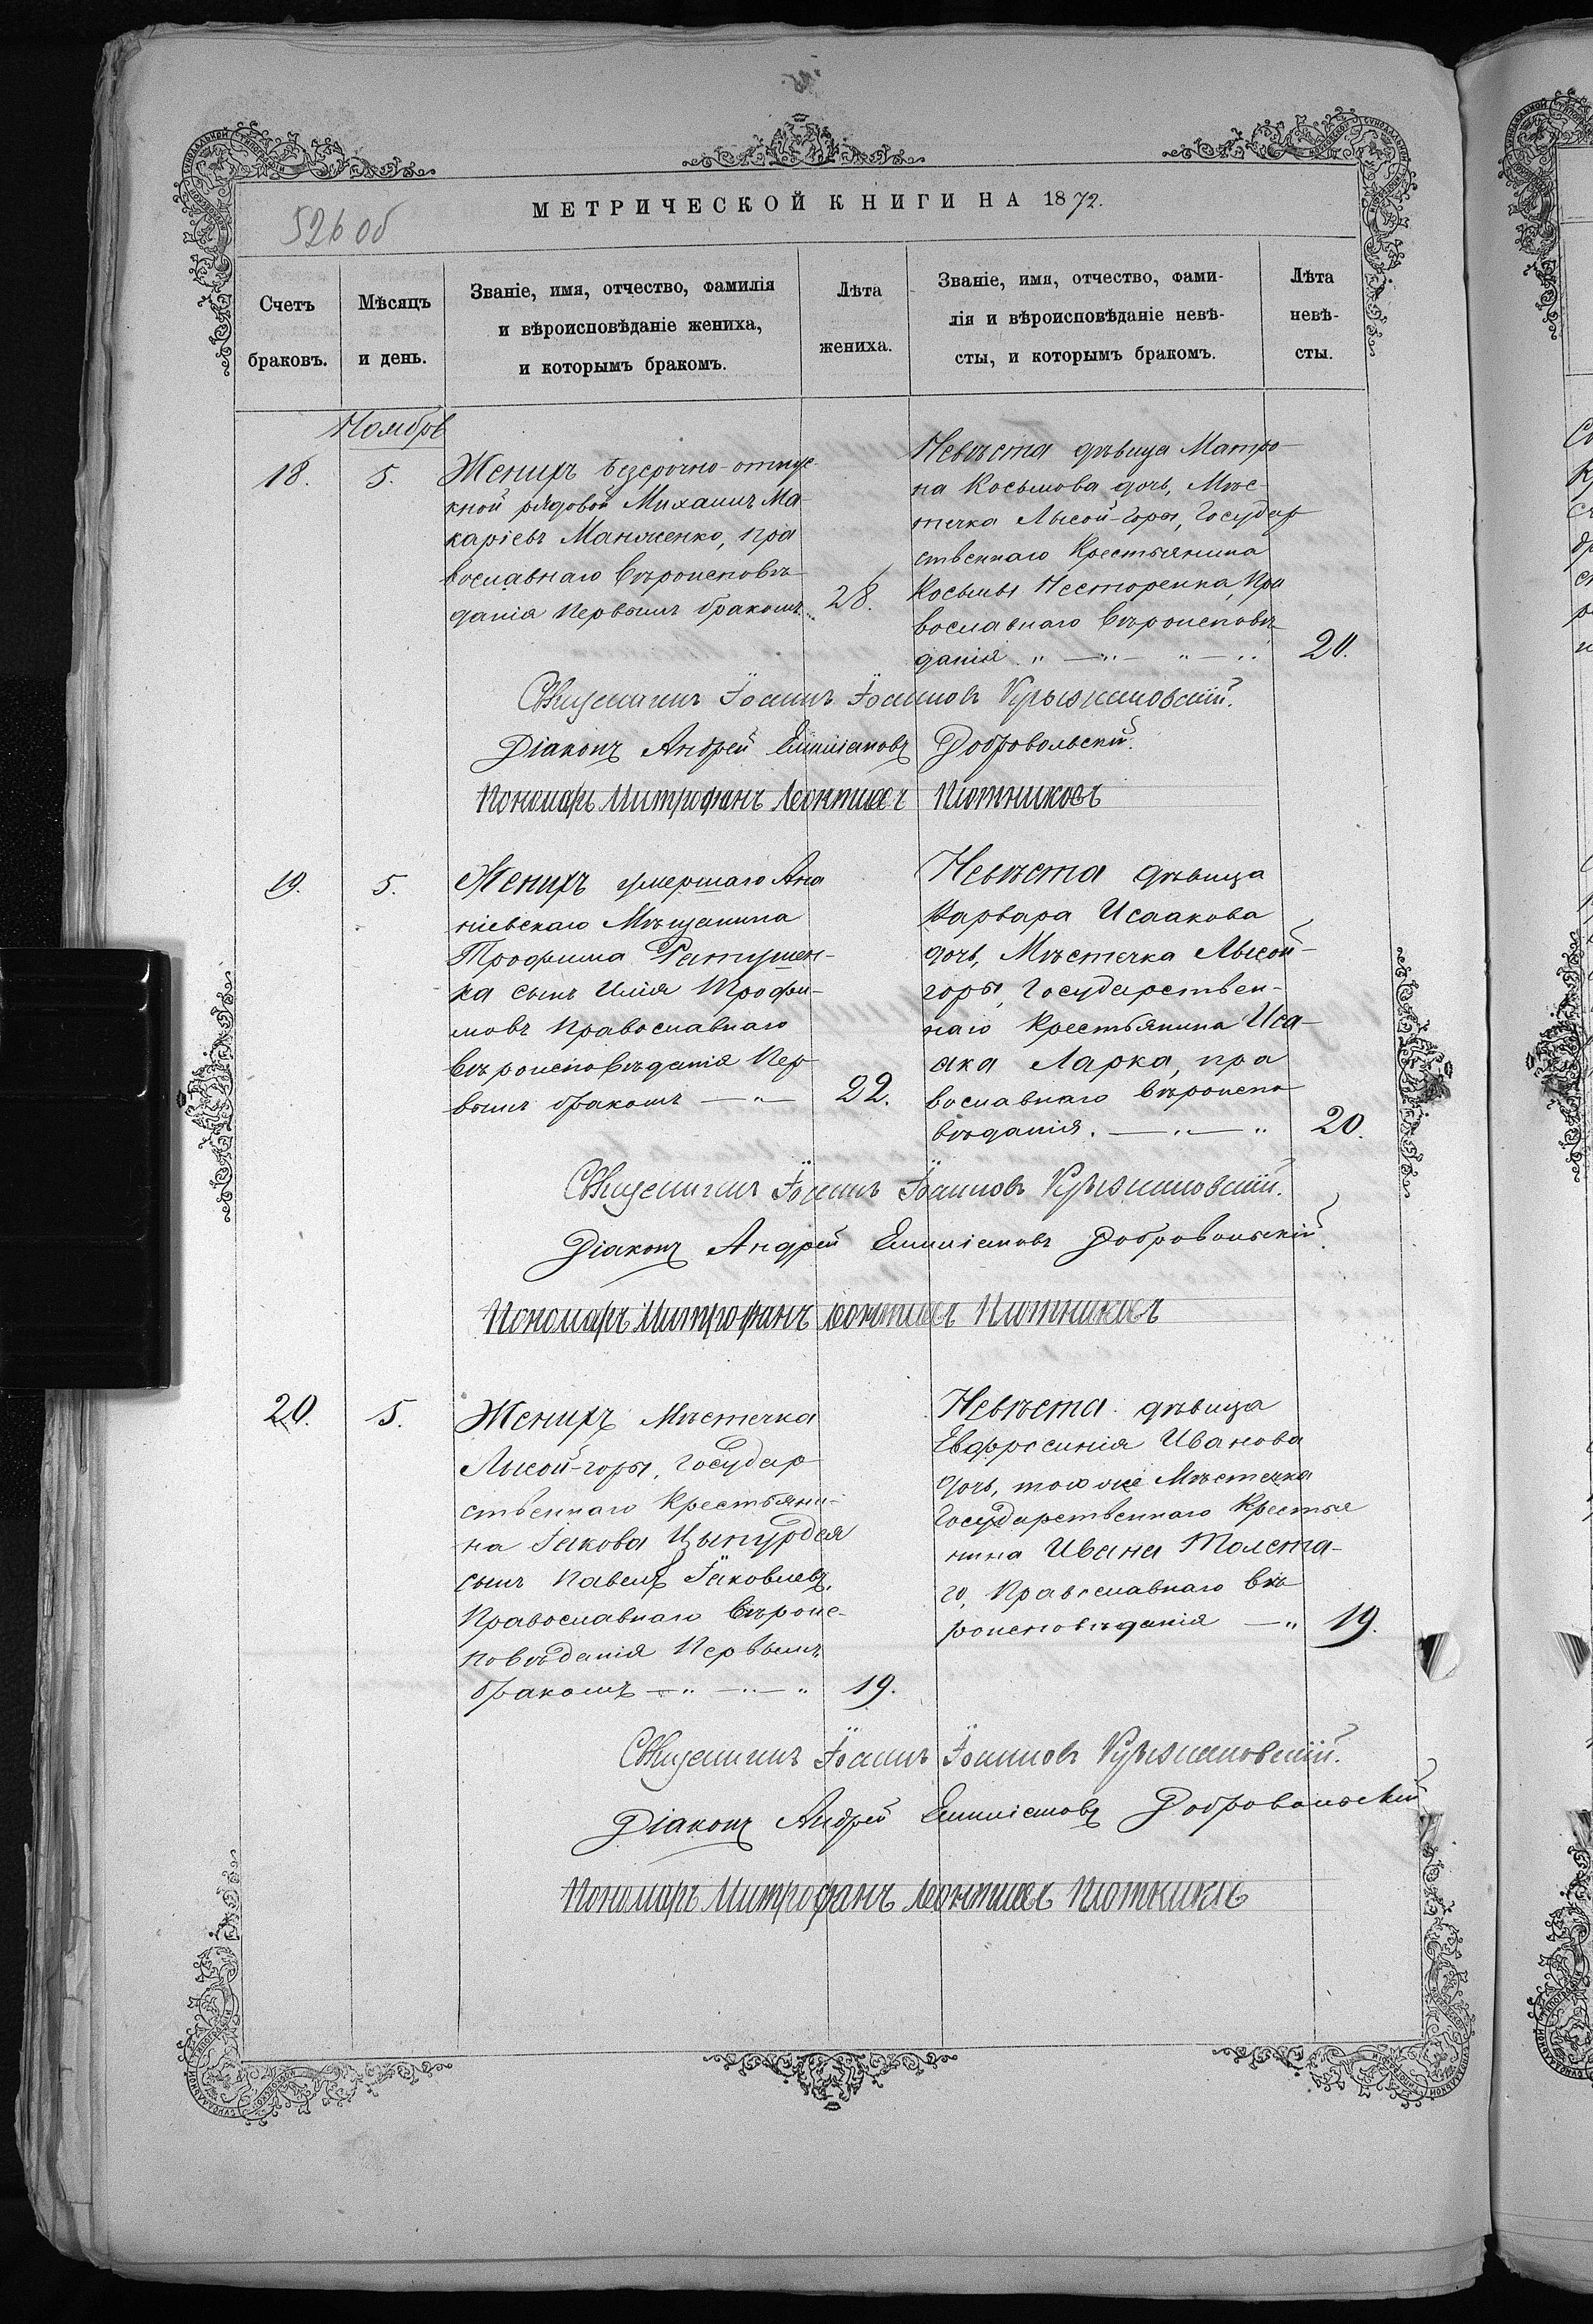 526 об
МЕТРИЧЕСКОЙ КНИГИ НА 1872.
Счетъ браковъ.
Мѣсяцъ и день.
Званіе, имя, отчество, фамилія
и вѣроисповѣданіе жениха,
и которымъ бракомъ.
Лѣта жениха.
Званіе, имя, отчество, фами-
лія и вѣроисповѣданіе невѣ-
сты, и которымъ бракомъ.
Лѣта невѣ-
сты.
Ноябрь
18.
5.
Женихъ безсрочно-отпус-
кной рядовой Михаилъ Ма
каріевъ Манженко, пра
вославнаго вѣроисповѣ
данія первымъ бракомъ
28.
Невѣста дѣвица Матро-
на Косьмова дочь, Мѣс-
течка Лысой-горы, Государ
ственнаго Крестьянина
Косьмы Несторенка, Пра
вославнаго вѣроисповѣ
данія
20.
Священникъ Іоаннъ Іоанновъ Крыжановскій.
Діаконъ Андрей Емиліановъ Добровольскій.
Пономарь Митрофанъ Леонтиевъ Плотниковъ
19.
5.
Женихъ умершаго Ана
ніевскаго Мѣщанина
Трофима Ратушен-
ка сынъ Илія Трофи-
мовъ Православнаго
вѣроисповѣданія Пер
вымъ бракомъ
22.
Невѣста дѣвица
Варвара Исаакова
дочь, Мѣстечка Лысой-
горы, Государствен-
наго Крестьянина Иса-
ака Ларка, пра
вославнаго вѣроиспо
вѣданія.
20.
Священникъ Іоаннъ Іоанновъ Крыжановскій.
Діаконъ Андрей Емиліановъ Добровольскій.
Пономарь Митрофанъ Леонтиевъ Плотниковъ
20.
5.
Женихъ Мѣстечка
Лысой-горы, Государ
ственнаго Крестьяни-
на Іакова Цыпурдея
сынъ Павелъ Іаковлевъ,
Православнаго вѣроис-
повѣданія Первымъ
бракомъ
19.
Невѣста дѣвица
Евфросинія Иванова
дочь, того же Мѣстечка
Государственнаго Крестья
нина Ивана Толста-
го, Православнаго вѣ
роисповѣданія
19.
Священникъ Іоаннъ Іоанновъ Крыжановскій.
Діаконъ Андрей Емиліановъ Добровольскій
Пономарь Митрофанъ Леонтиевъ Плотниковъ